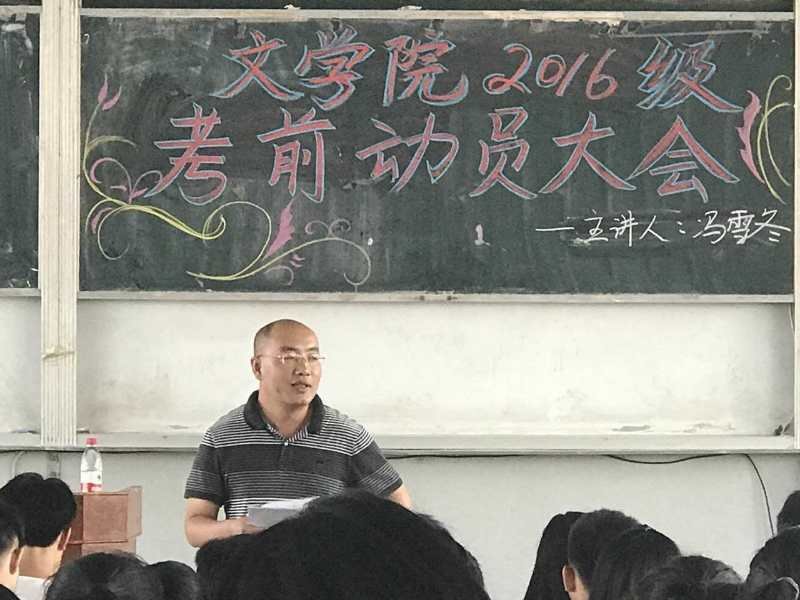 文学院2016级
考前动员大会
—主讲人:冯雪冬